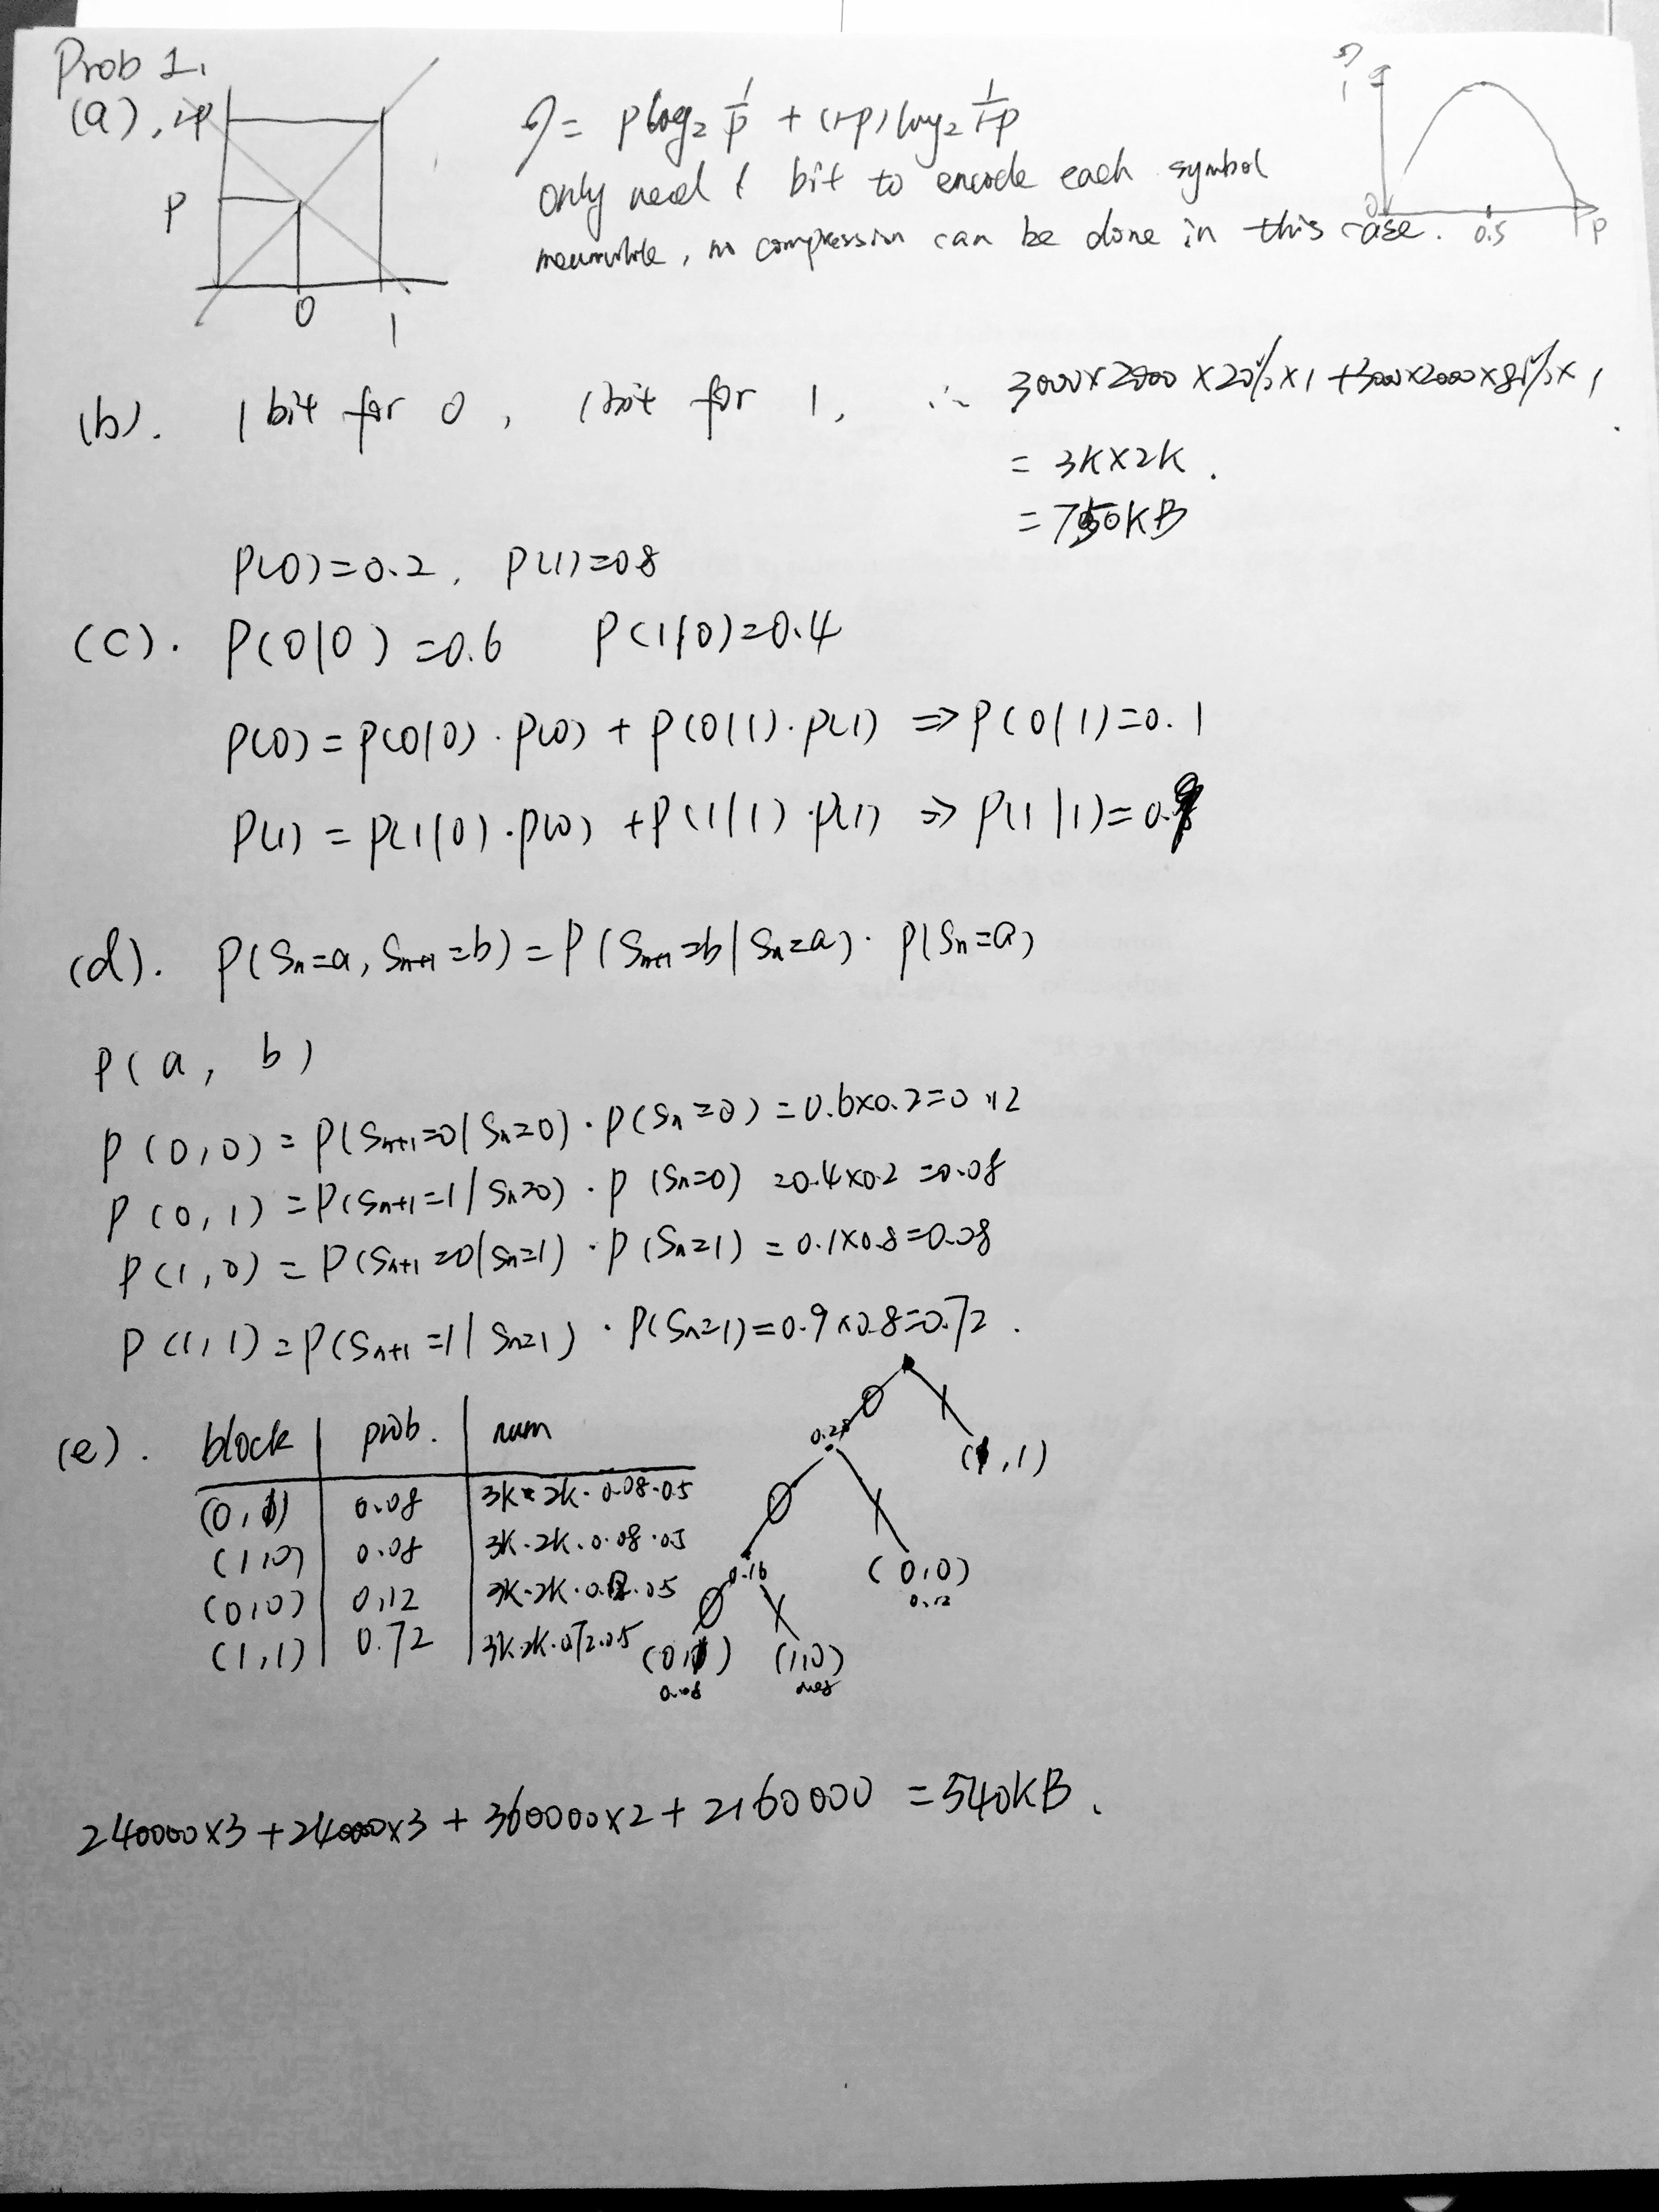 Prob 1.
(a). 1-p
p
0
1
η = p log₂ 1/p + (1-p) log₂ 1/1-p
only need 1 bit to encode each symbol
meanwhile, no compression can be done in this case.
η
1
0
0.5
1
p
(b). 1 bit for 0, 1 bit for 1, ∴ 3000×2000×20%×1+3000×2000×80%×1
= 3K×2K.
= 750KB
P(0)=0.2, P(1)=0.8
(c). P(0|0)=0.6 P(1|0)=0.4
P(0)=P(0|0)·P(0)+P(0|1)·P(1) ⇒ P(0|1)=0.1
P(1)=P(1|0)·P(0)+P(1|1)·P(1) ⇒ P(1|1)=0.9
(d). P(Sn=a, Sn+1=b)=P(Sn+1=b|Sn=a)·P(Sn=a)
P(a, b)
P(0,0)=P(Sn+1=0|Sn=0)·P(Sn=0)=0.6×0.2=0.12
P(0,1)=P(Sn+1=1|Sn=0)·P(Sn=0)=0.4×0.2=0.08
P(1,0)=P(Sn+1=0|Sn=1)·P(Sn=1)=0.1×0.8=0.08
P(1,1)=P(Sn+1=1|Sn=1)·P(Sn=1)=0.9×0.8=0.72.
(e). block prob. num
(0,1) 0.08 3K·2K·0.08·0.5
(1,0) 0.08 3K·2K·0.08·0.5
(0,0) 0.12 3K·2K·0.12·0.5
(1,1) 0.72 3K·2K·0.72·0.5
0 1
0.28 (1,1)
0 1
0.16 (0,0)
0.12
0 1
(0,1) (1,0)
0.08 0.08
240000×3+240000×3+360000×2+2160000=540KB.